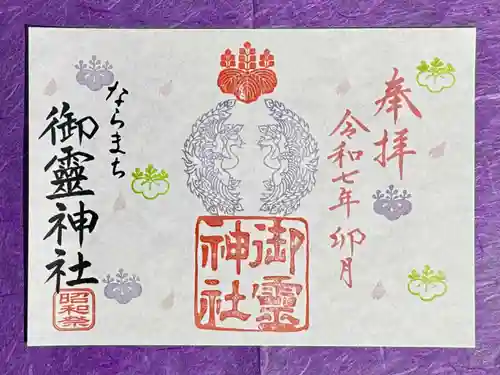 奉拝
令和七年 卯月
御靈神社
ならまち
御靈神社
昭和祭